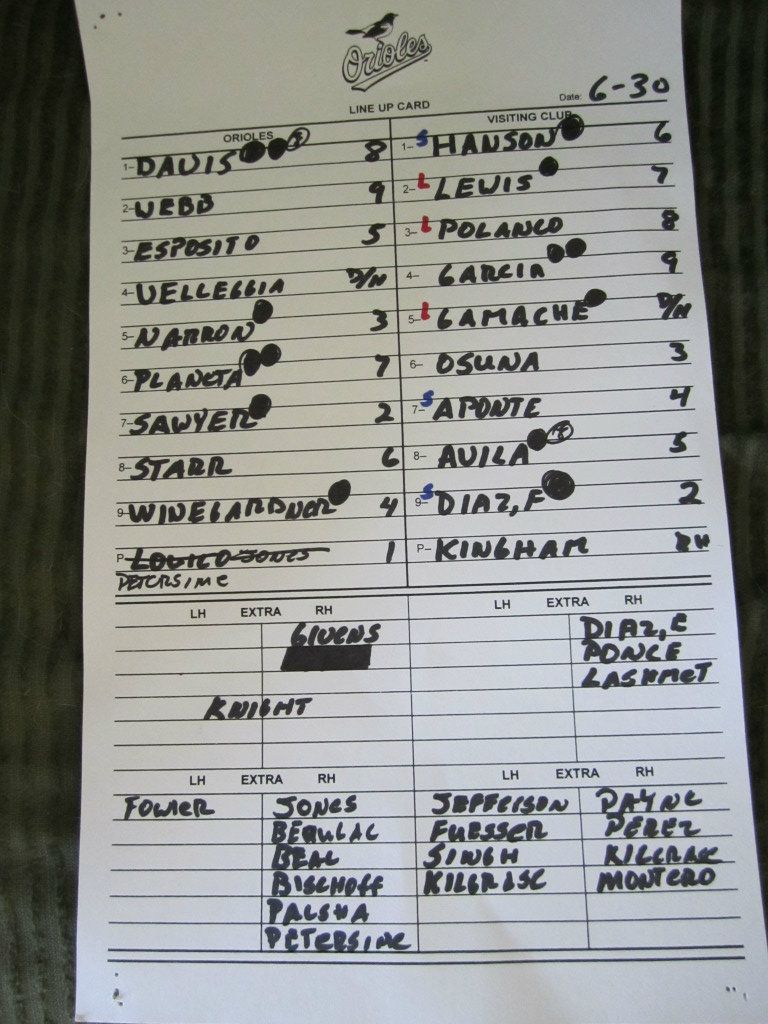 Orioles
LINE UP CARD
Date: 6-30
ORIOLES
1- DAVIS 8
2- WEBB 9
3- ESPOSITO 5
4- VELLEGGIA D/H
5- NARRON 3
6- PLANETA 7
7- SAWYER 2
8- STARR 6
9- WINEGARDNER 4
P- 1
PETERSIME
VISITING CLUB
1- S HANSON 6
2- L LEWIS 7
3- L POLANCO 8
4- GARCIA 9
5- L GAMACHE D/H
6- OSUNA 3
7- S APONTE 4
8- AVILA 5
9- S DIAZ, F 2
P- KINGHAM RH
LH EXTRA RH
GIVENS
KNIGHT
LH EXTRA RH
DIAZ, E
PONCE
LASHMET
LH EXTRA RH
FOWLER JONES
BERULAC
BEAL
BISCHOFF
PALSHA
PETERSIME
LH EXTRA RH
JEFFERSON PAYNE
FUESSER PEREZ
SINGH KILCRAE
KILGRASE MONTERO